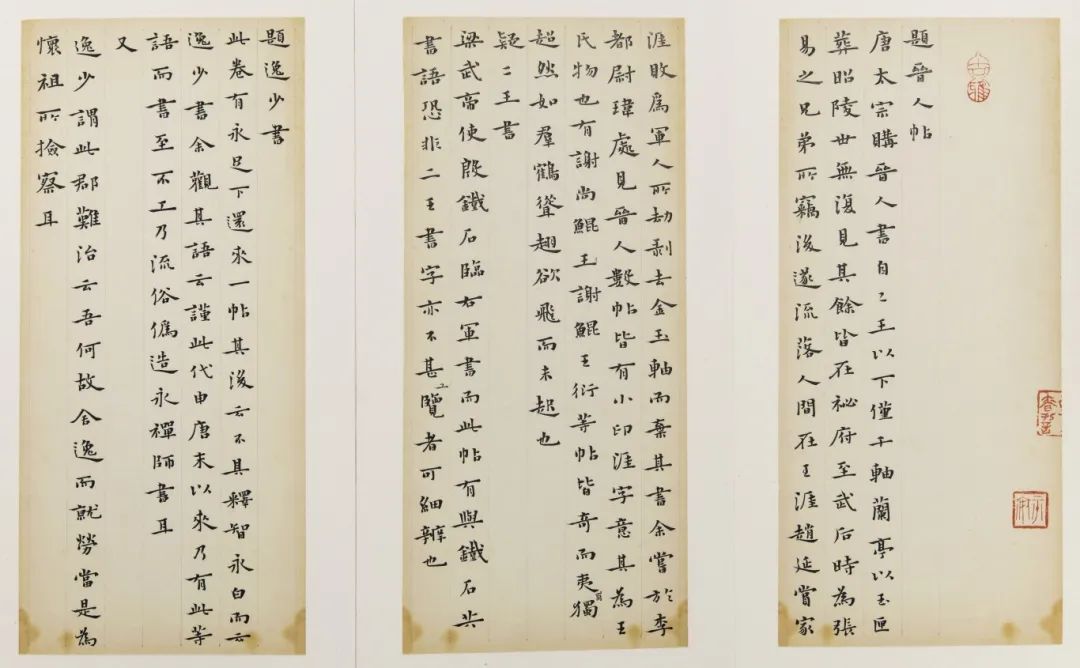 題晉人帖
唐太宗購晉人書自二王以下僅千軸蘭亭以玉匣
葬昭陵世無復見其餘皆在祕府至武后時為張
易之兄弟所竊後遂流落人間在王涯趙延嘗家
涯敗爲軍人所劫剥去金玉軸而棄其書余嘗於李
都尉瑋處見晉人數帖皆有小印涯字意其為王
氏物也有謝尚鯤王謝鯤王衍等帖皆奇而夷獨
超然如羣鶴聳翅欲飛而未起也
疑二王書
梁武帝使殷鐵石臨右軍書而此帖有與鐵石共
書語恐非二王書字亦不甚工覽者可細辨也
題逸少書
此卷有永足下還來一帖其後云不具釋智永白而云
逸少書余觀其語云謹此代申唐末以來乃有此等
語而書至不工乃流俗僞造永禪師書耳
又
逸少謂此郡難治云吾何故舍逸而就勞當是為
懷祖所撿察耳